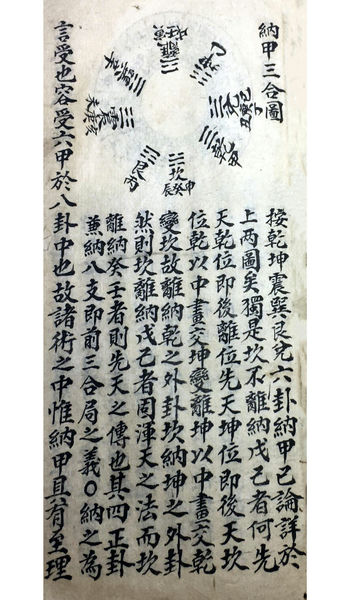 納甲三合圖
按乾坤震巽艮兌六卦納甲已論詳於
上两圖矣獨是坎不離納戊己者何先
天乾位即後離位先天坤位即後天坎
位乾以中畫交坤變離坤以中畫交乾
變坎故離納乾之外卦坎納坤之外卦
然則坎離納戊己者固渾天之法而坎
離納癸子者則先天之傳也其四正卦
兼納八支即前三合局之義○納之為
言受也容受六甲於八卦中也故諸術之中惟納甲具有至理
離
坎
艮丙
震
乾